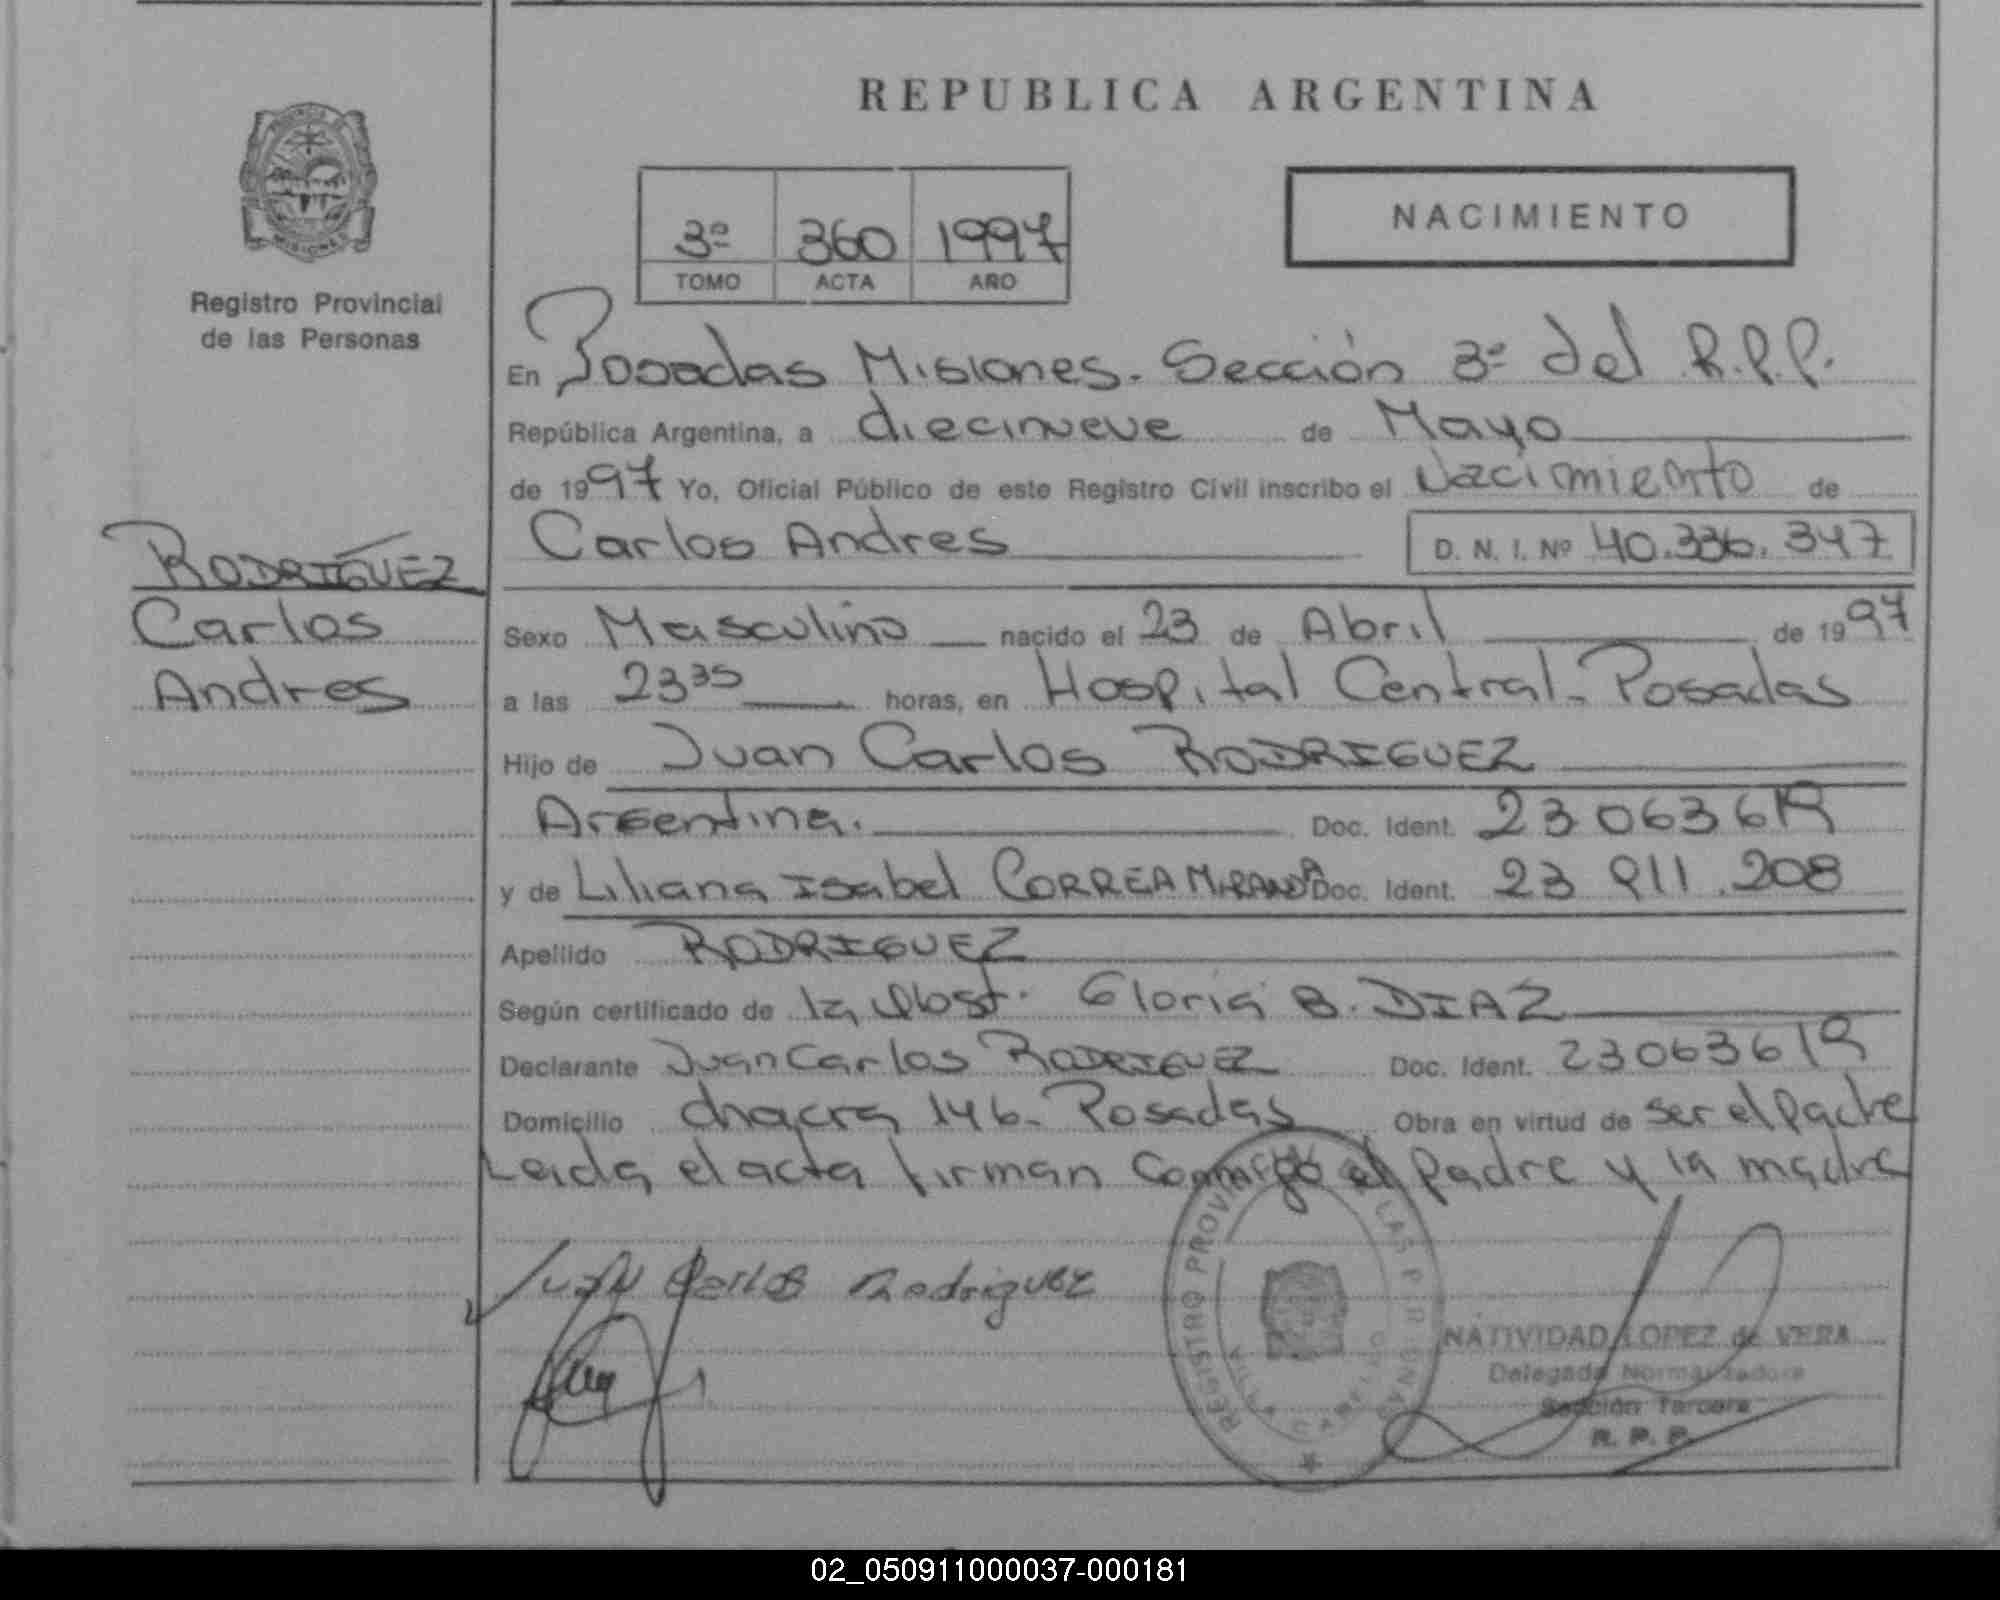 REPUBLICA ARGENTINA
MISIONES
Registro Provincial
de las Personas
3º 360 1997
TOMO ACTA AÑO
NACIMIENTO
En Posadas Misiones. Sección 3º del R.P.P.
República Argentina, a diecinueve de Mayo
de 1997 Yo, Oficial Público de este Registro Civil inscribo el Nacimiento de
Carlos Andres D. N. I. Nº 40.336.347
RODRIGUEZ
Carlos
Andres
Sexo Masculino nacido el 23 de Abril de 1997
a las 23 35 horas, en Hospital Central - Posadas
Hijo de Juan Carlos RODRIGUEZ
Argentina. Doc. Ident. 23 063 619
y de Liliana Isabel CORREA MIRANDA Doc. Ident. 23 911.208
Apellido RODRIGUEZ
Según certificado de la Obst. Gloria B. DIAZ
Declarante Juan Carlos RODRIGUEZ Doc. Ident. 23063619
Domicilio chacra 146 - Posadas Obra en virtud de ser el padre
Leida el acta firman conmigo el padre y la madre
Juan Carlos Rodriguez
REGISTRO PROVINCIAL LAS PERSONAS
NATIVIDAD LOPEZ de VERA
Delegada Normalizadora
Sección Tercera
R. P. P.
02_050911000037-000181